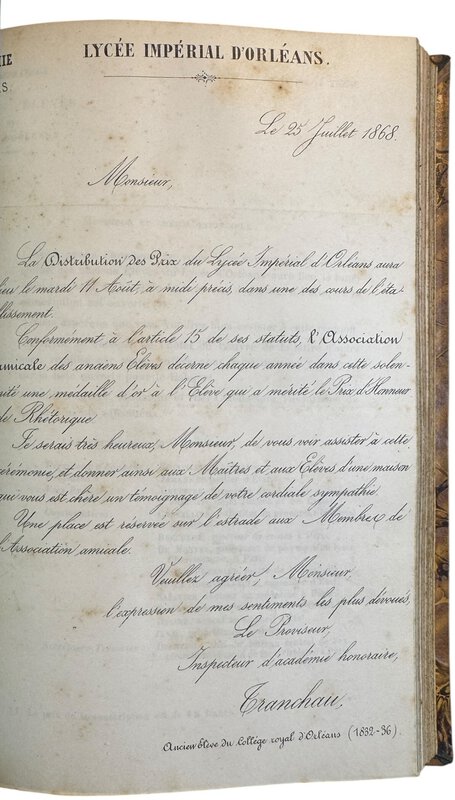 IE
S.
LYCÉE IMPÉRIAL D'ORLÉANS.
Le 25 Juillet 1868.
Monsieur,
La Distribution des Prix du Lycée Impérial d'Orléans aura
lieu le mardi 11 Août, à midi précis, dans une des cours de l'éta-
blissement.
Conformément à l'article 15 de ses statuts, l'Association
amicale des anciens Elèves décerne chaque année dans cette solen-
nité une médaille d'or à l'Elève qui a mérité le Prix d'Honneur
de Rhétorique.
Je serais très heureux, Monsieur, de vous voir assister à cette
cérémonie, et donner ainsi aux Maîtres et aux Elèves d'une maison
qui vous est chère un témoignage de votre cordiale sympathie.
Une place est réservée sur l'estrade aux Membres de
l'Association amicale.
Veuillez agréer, Monsieur,
l'expression de mes sentiments les plus dévoués,
Le Proviseur,
Inspecteur d'académie honoraire,
Tranchau,
Ancien élève du Collège royal d'Orléans (1832-36).